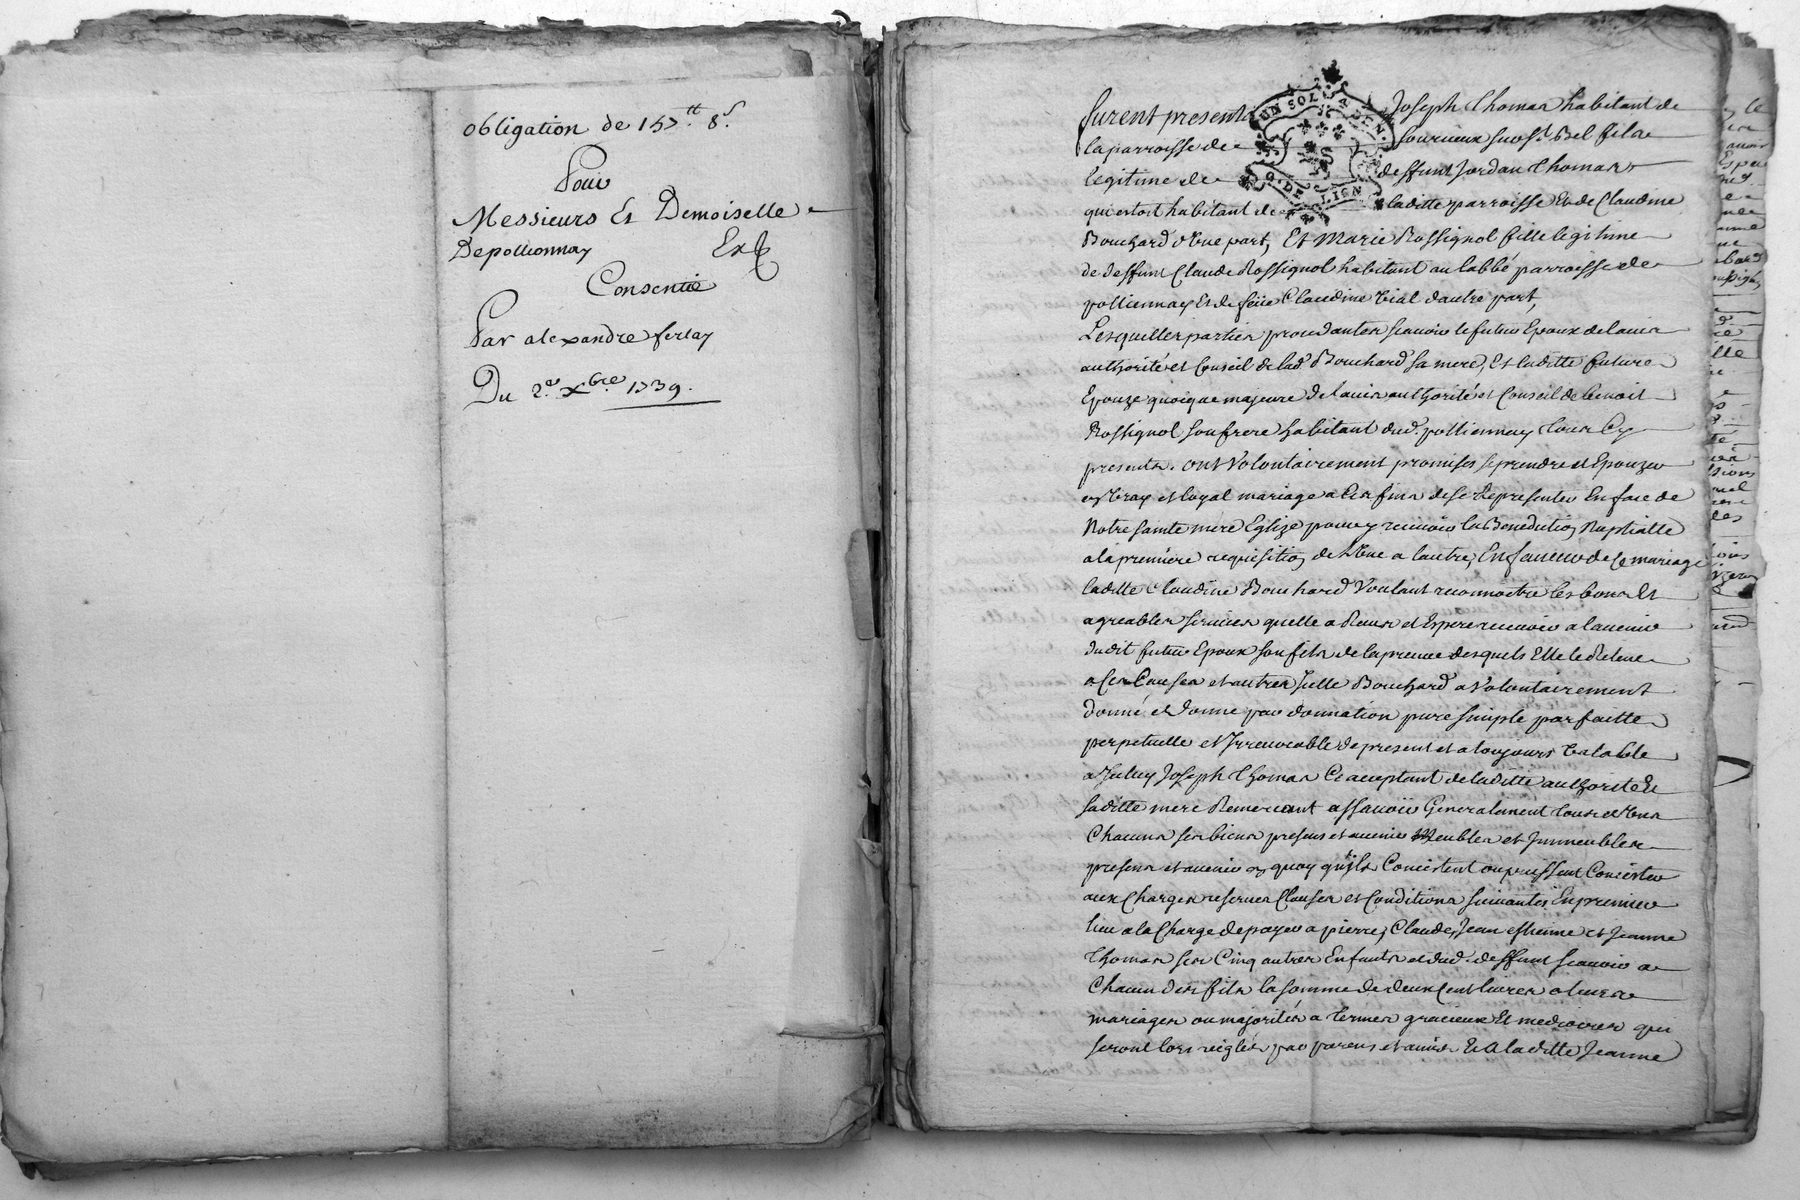 obligation de 157.tt 8.s
Pour
Messieurs Et Demoiselle
Depollionnay Exp
Consentie
Par alexandre ferlay
Du 2.e xbre 1739.
furent presents Joseph Thomas habitant de
la parroisse de Sourcieux sur St Bel fils
legitime de deffunt Jordan Thomas
qui estoit habitant de laditte parroisse Et de Claudine
Bouchard d'Une part, Et Marie Rossignol fille legitime
de deffunt Claude Rossignol habitant au labbé parroisse de
pollionnay Et de feüe Claudine Vial d'autre part,
Lesquelles parties procedantes scavoir le futur Epoux de l'avis
authorité et Conseil de lad. Bouchard sa mere, Et laditte future
Epouze quoique majeure de l'avis authorité et Conseil de Benoit
Rossignol son frere habitant dud. pollionnay tous Cy
presents. ont Volontairement promises se prendre et Epouzer
en Vray et loyal mariage a Ces fins de se Representer En face de
Notre sainte mere Eglize pour y recevoir la Benediction Nuptialle
a la premiere requisition de l'Une a lautre, En faveur de Ce mariage
laditte Claudine Bouchard Voulant reconnoitre les bons Et
agreables services quelle a Reçus et Espere recevoir a lavenir
dudit futur Epoux son fils de la preuve desquels Elle le Releve
a Ces Causes et autres Jcelle Bouchard a Volontairement
donné et donne par donnation pure simple parfaitte
perpetuelle et Jrrevocable de present et a toujours Valable
a Jceluy Joseph Thomas Cy acceptant de laditte authorité Et
saditte mere Remerciant assavoir Generalement tous et Uns
Chacuns ses biens presens et avenir Meubles et Jmmeubles
presens et avenir en quoy qu'ils Concistent ou puissent Concister
aux Charges reserves Clauses et Conditions suivantes En premier
lieu a la Charge de payer a pierre, Claude, Jean estienne et Jeanne
Thomas ses Cinq autres Enfants et dud. deffunt scavoir a
Chacun des fils la somme de deux Cent livres a leurs
mariages ou majorités a termes gracieux Et mediocres qui
seront lors reglés par parens et amis Et a laditte Jeanne
UN SOL 4 DEN.
G. DE LION